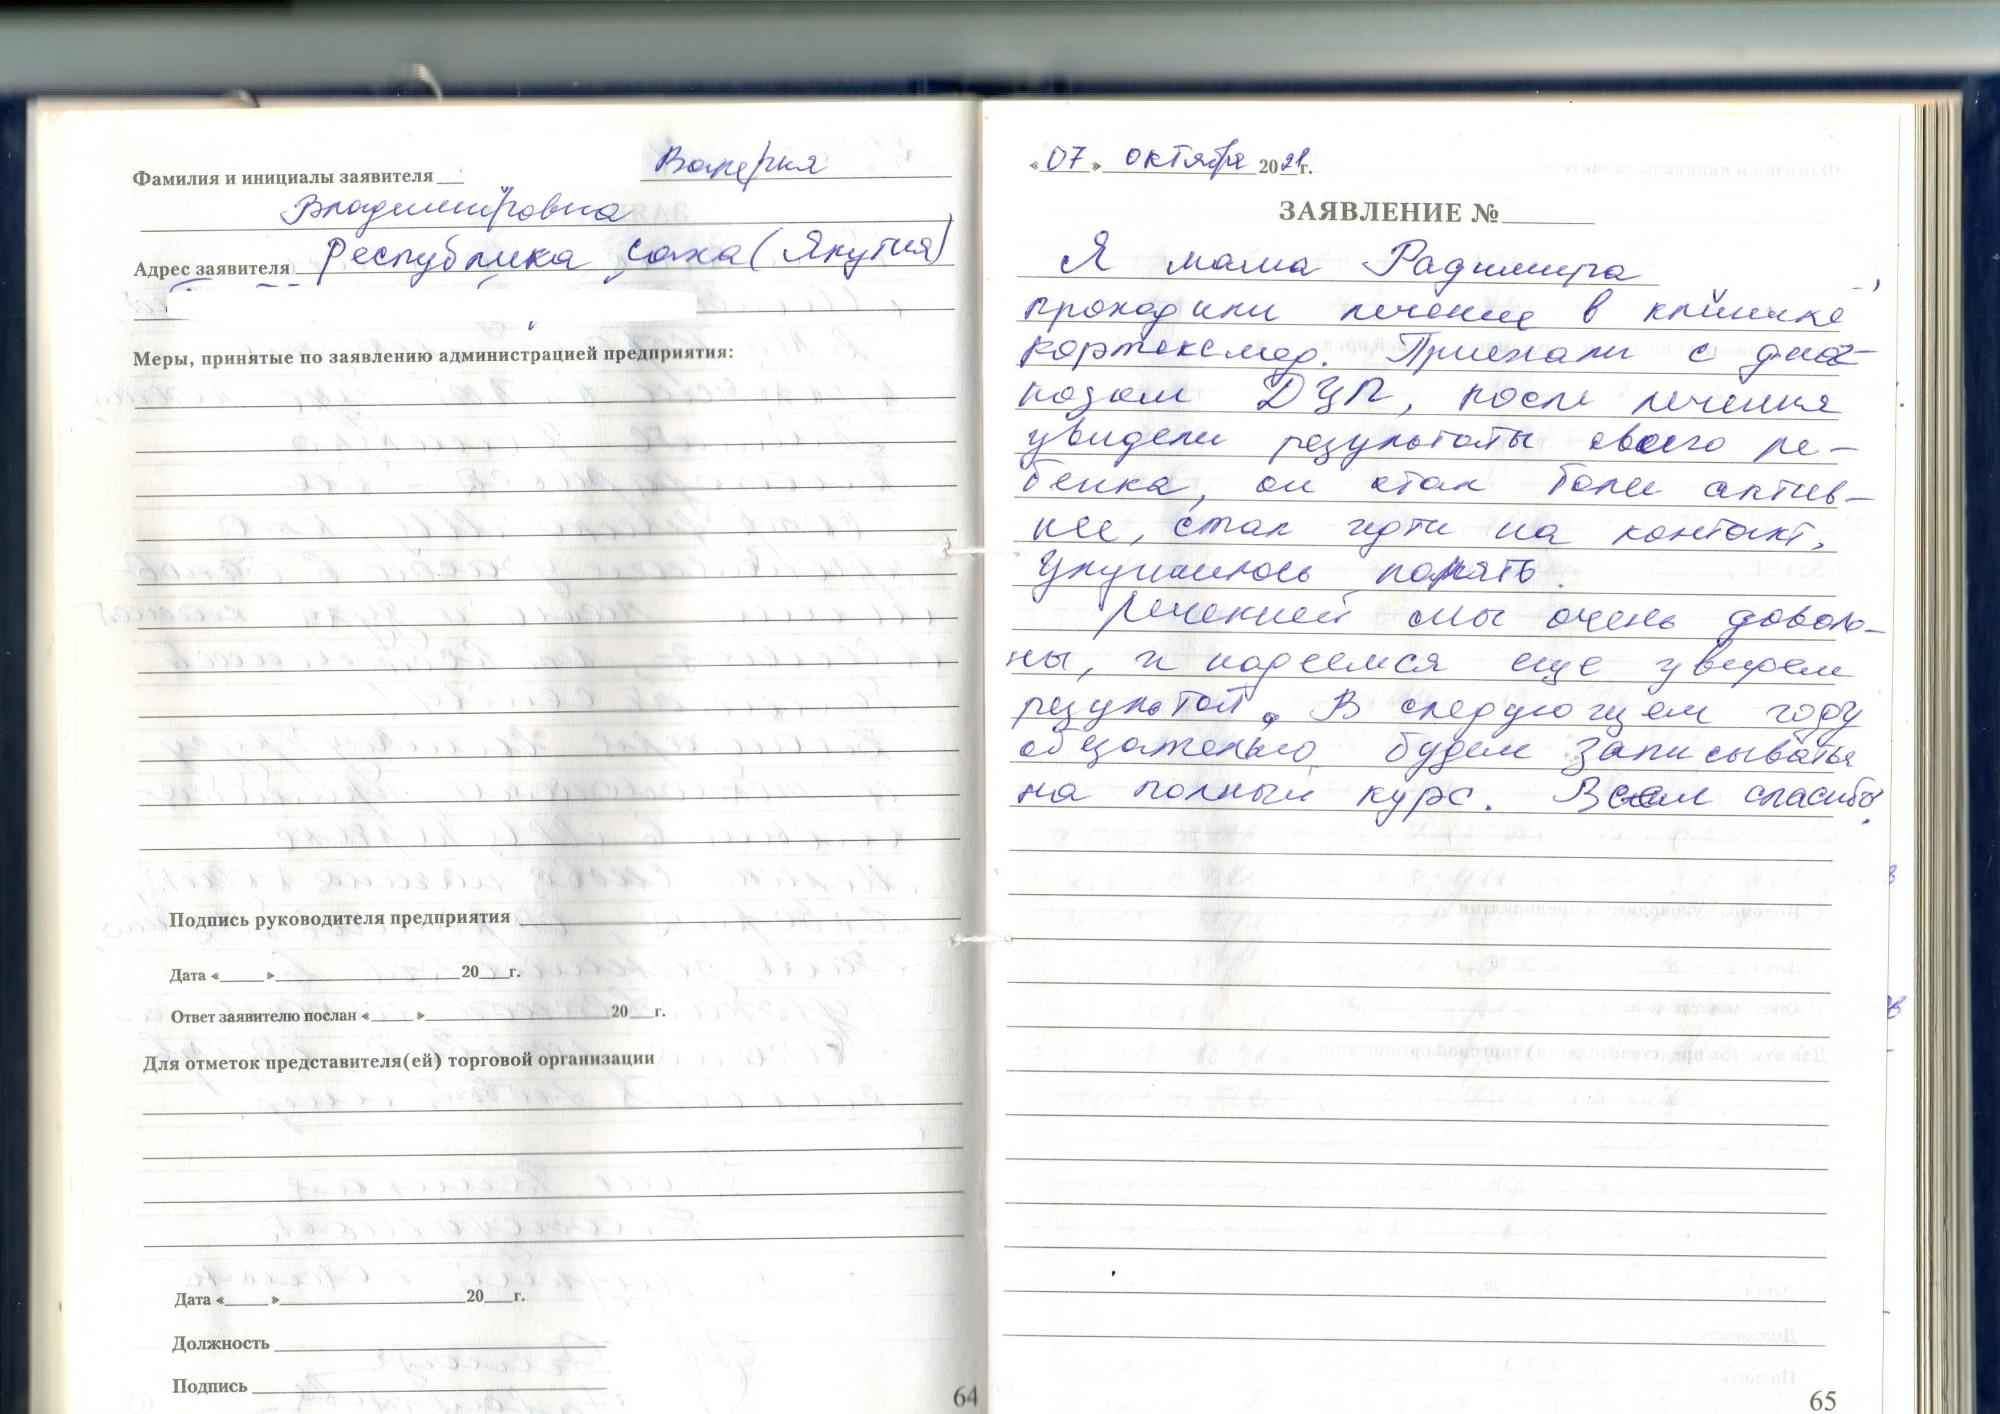 Фамилия и инициалы заявителя Валерия
Владимировна
Адрес заявителя Республика Саха (Якутия)
Меры, принятые по заявлению администрацией предприятия:
Подпись руководителя предприятия
Дата «____» ____ 20__г.
Ответ заявителю послан «____» ____ 20__г.
Для отметок представителя(ей) торговой организации
Дата «____» ____ 20__г.
Должность
Подпись
64
«07» октября 2021г.
ЗАЯВЛЕНИЕ №
Я мама Радимира ,
проходили лечение в клинике
кортексмед. Приехали с диаг-
нозом ДЦП, после лечения
увидели результаты своего ре-
бенка, он стал боле актив-
нее, стал идти на контакт.
Улучшилось память.
Лечением мы очень доволь-
ны, и надеемся еще увидем
результат. В следующем году
обязательно будем записываться
на полный курс. Всем спасибо.
65